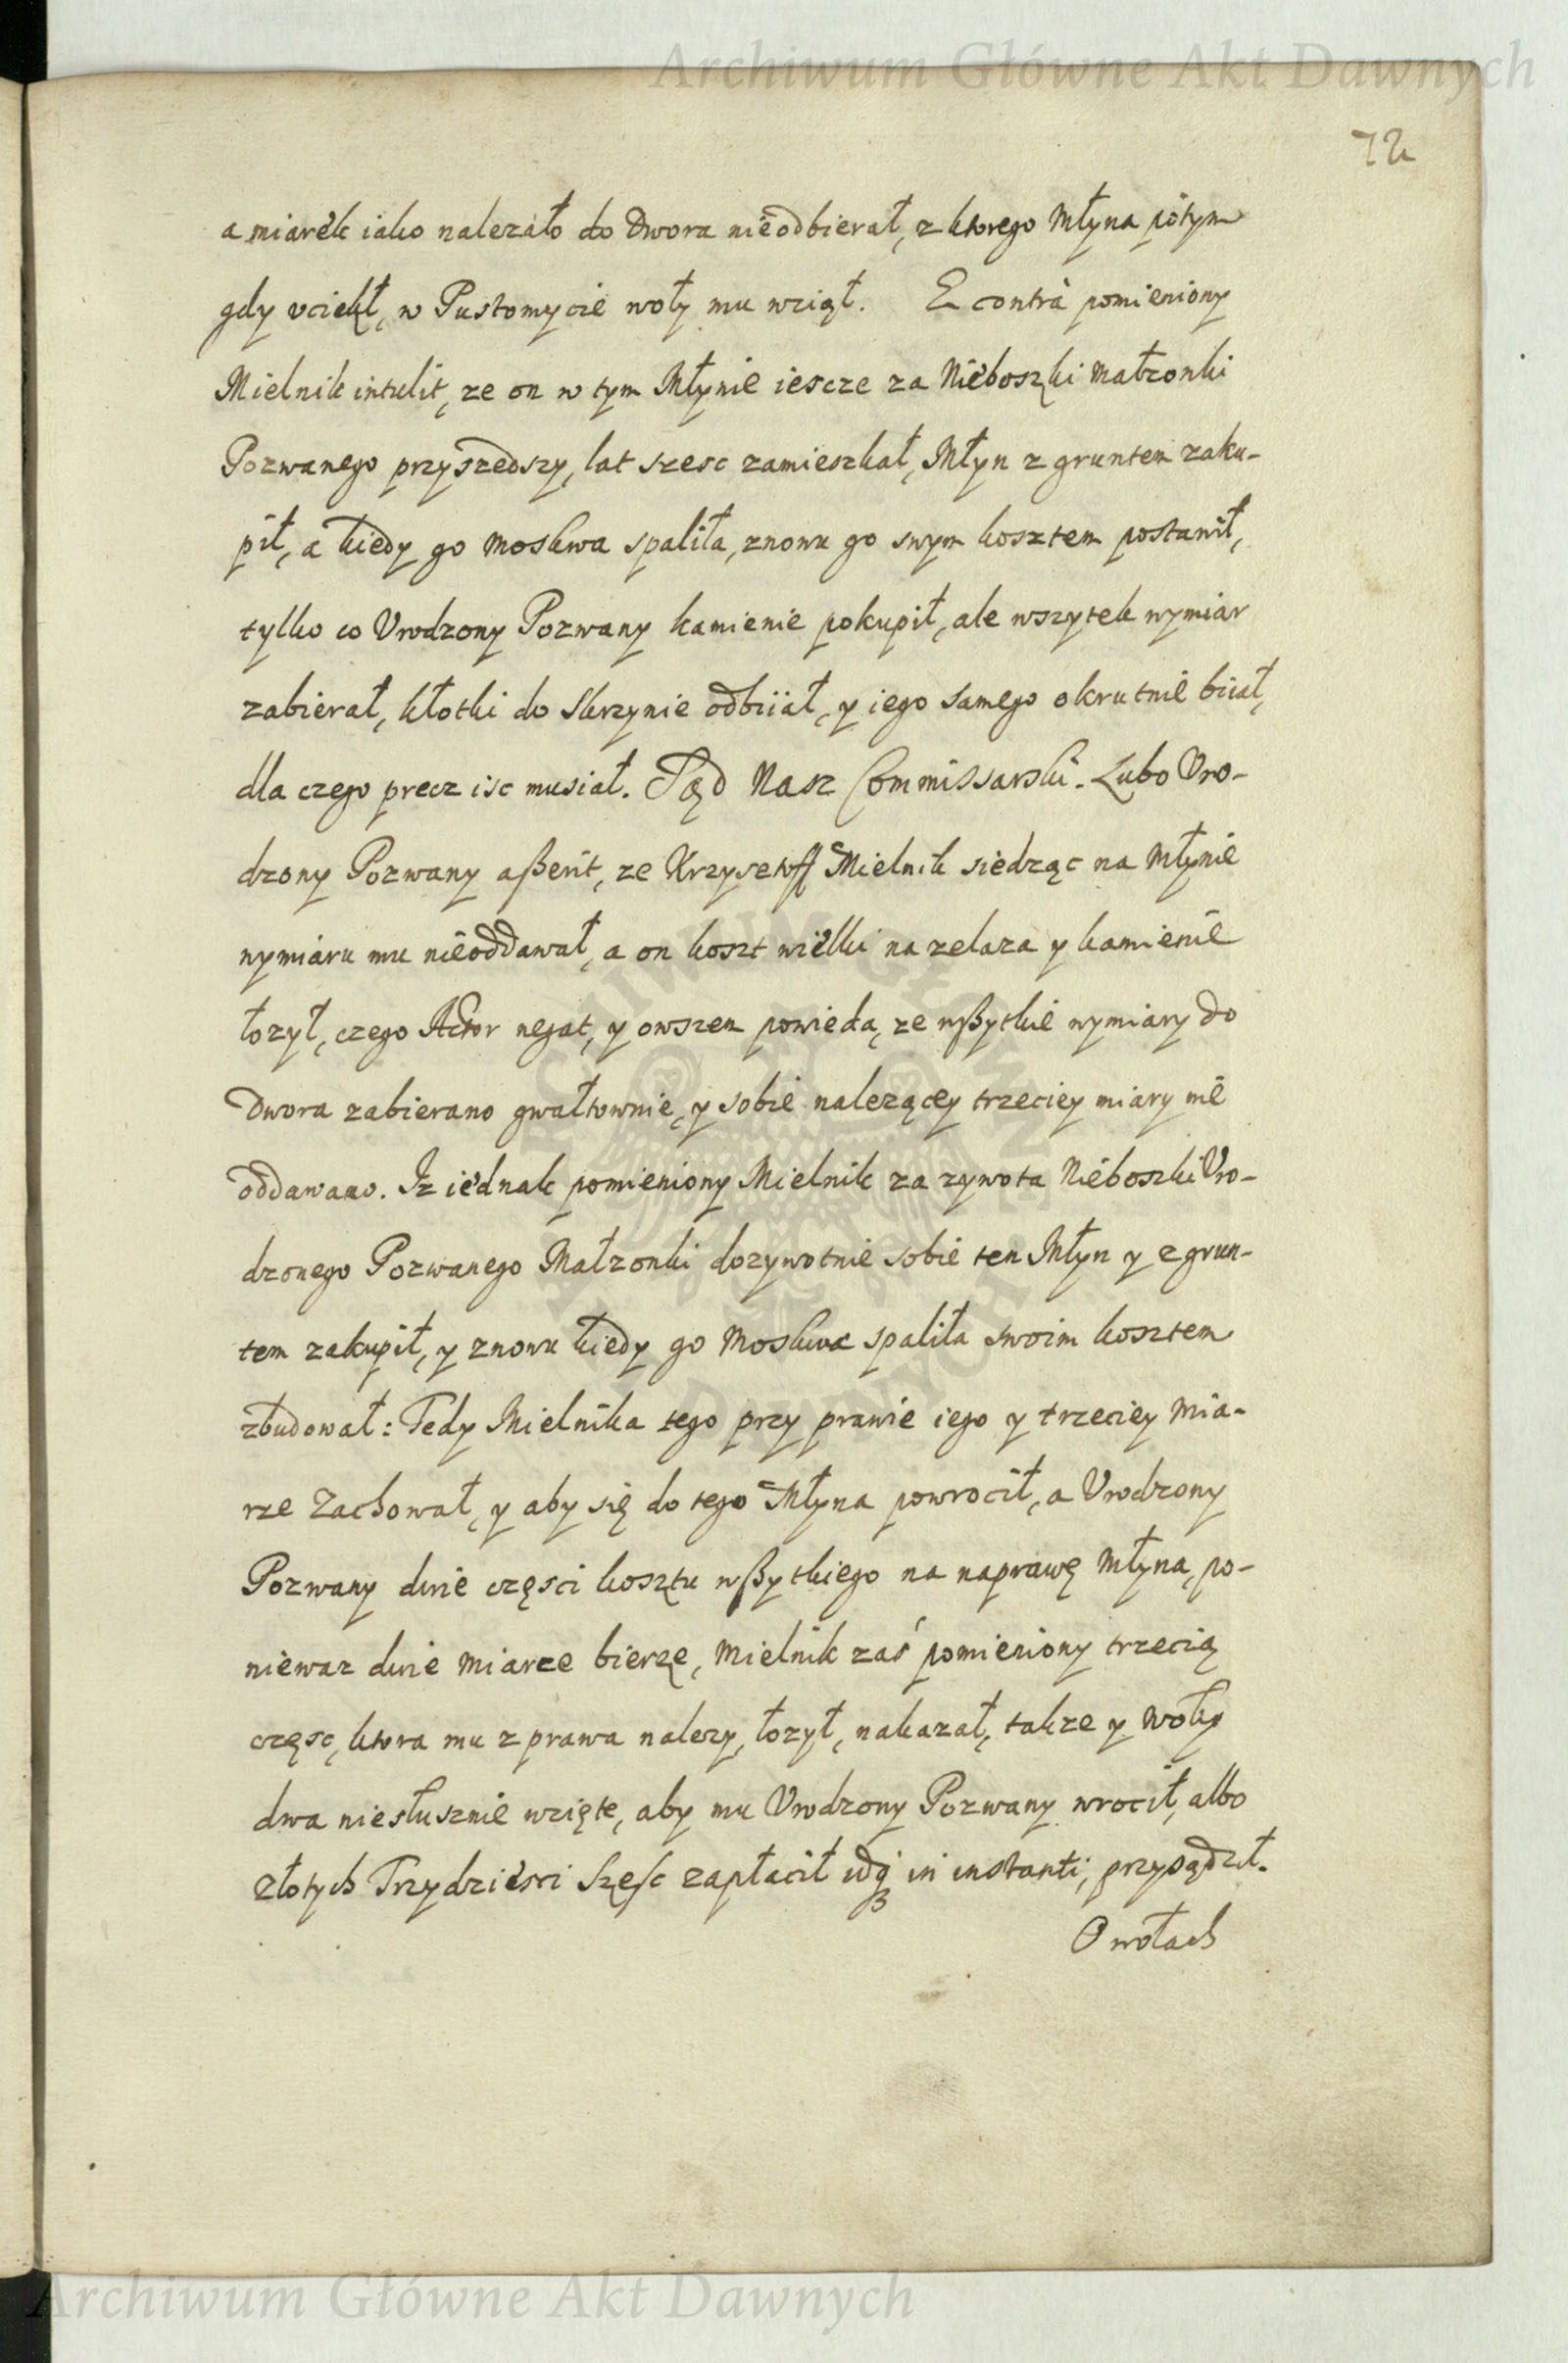 Archiwum Główne Akt Dawnych
72
a miarek iako nalezało do Dwora nieodbierał, z ktorego Młyna potym
gdy vciekł, w Pustomycie woły mu wziął. E contrà pomieniony
Mielnik intulit, ze on w tym Młynie iescze za Nieboszki Małzonki
Pozwanego przyszedszy, lat szesc zamieszkał, Młyn z gruntem zaku-
pił, a kiedy go Moskwa spaliła, znowu go swym kosztem postawił,
tylko co Vrodzony Pozwany kamienie pokupił, ale wszytek wymiar
zabierał, kłotki do Skrzynie odbiiał, y iego samego okrutnie biiał,
dla czego precz isc musiał. Sąd Nasz Commissarski. Lubo Vro-
dzony Pozwany aßerit, ze Krzysztoff Mielnik siedząc na Młynie
wymiaru mu nieoddawał, a on koszt wielki na zelaza y kamienie
łozył, czego Actor negat, y owszem powieda, ze wßytkie wymiary do
Dwora zabierano gwałtownie, y sobie nalezącey trzeciey miary nie
oddawano. Iz iednak pomieniony Mielnik za zywota Nieboszki Vro-
dzonego Pozwanego Małzonki dozywotnie sobie ten Młyn y z grun-
tem zakupił, y znowu kiedy go Moskwa spaliła swoim kosztem
zbudował: Tedy Mielnika tego przy prawie iego y trzeciey mia-
rze Zachował, y aby się do tego Młyna powrocił, a Vrodzony
Pozwany dwie częsci kosztu wßytkiego na naprawę Młyna, po-
niewaz dwie miarze bierze, Mielnik zaś pomieniony trzecią
częsc, ktora mu z prawa nalezy, łozył, nakazał, takze y Woły
dwa niesłusznie wzięte, aby mu Vrodzony Pozwany wrocił, albo
złotych Trzydziesci Szesc zapłacił in instanti, przysądził.
O wołach
Archiwum Główne Akt Dawnych